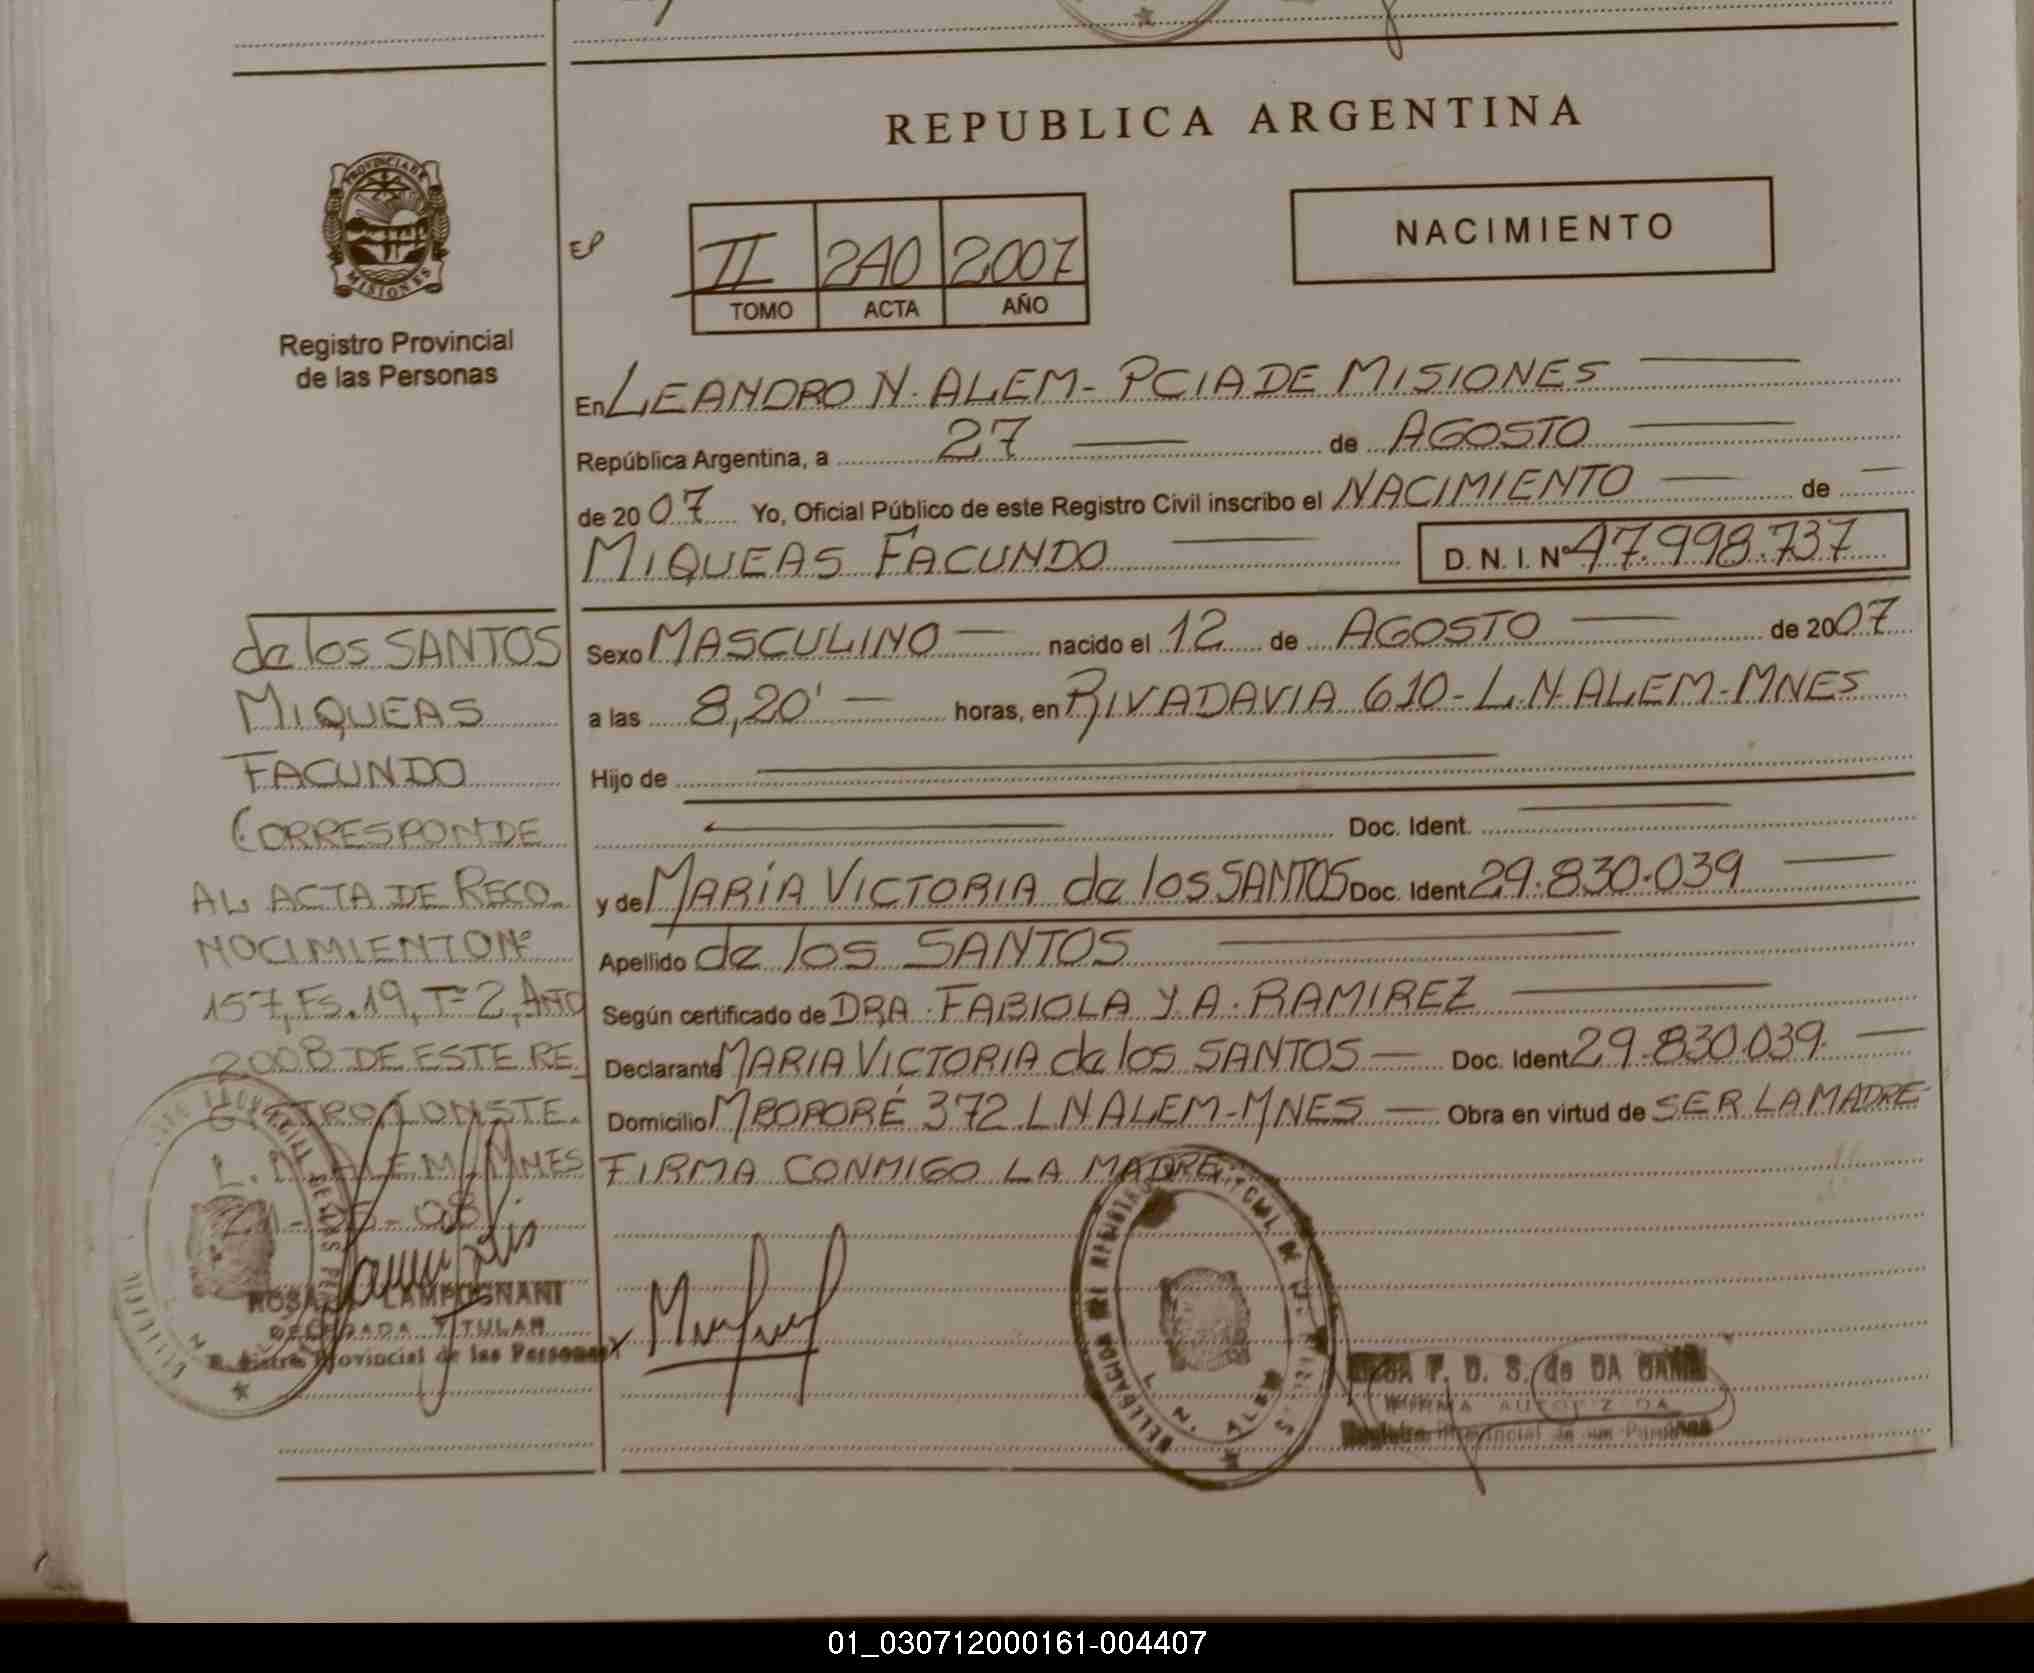 REPUBLICA ARGENTINA
PROVINCIA DE
MISIONES
Registro Provincial
de las Personas
EP
II 240 2007
TOMO ACTA AÑO
NACIMIENTO
En LEANDRO N. ALEM - PCIA DE MISIONES
República Argentina, a 27 de AGOSTO
de 2007 Yo, Oficial Público de este Registro Civil inscribo el NACIMIENTO de
MIQUEAS FACUNDO D. N. I. Nº 47.998.737
Sexo MASCULINO nacido el 12 de AGOSTO de 2007
a las 8,20' horas, en RIVADAVIA 610 - L.N. ALEM - MNES
Hijo de
Doc. Ident.
y de MARÍA VICTORIA de los SANTOS Doc. Ident 29.830.039
Apellido de los SANTOS
Según certificado de DRA. FABIOLA Y. A. RAMIREZ
Declarante MARIA VICTORIA de los SANTOS Doc. Ident 29.830.039
Domicilio MBOPORÉ 372 L N ALEM - MNES Obra en virtud de SER LA MADRE
FIRMA CONMIGO LA MADRE
de los SANTOS
MIQUEAS
FACUNDO
CORRESPONDE
AL ACTA DE RECO-
NOCIMIENTO Nº
157, Fs. 19, Tº 2, AÑO
2008 DE ESTE RE-
GISTRO CONSTE.
L. N. ALEM, MNES
ROSA LAMPUGNANI
DELEGADA TITULAR
Registro Provincial de las Personas
L. N. ALEM
F. D. S. de DA GAMA
FIRMA AUTORIZADA
Registro Provincial de las Personas
01_030712000161-004407